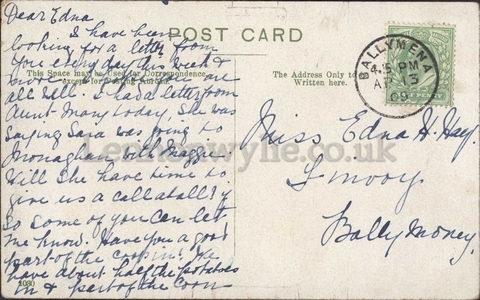 Dear Edna
I have been
looking for a letter from
you every day this week &
POST CARD
This Space may be Used for Correspondence
The Address Only to be
Written here.
are
all well. I had a letter from
Aunt Mary today, she was
saying Sara was going to
Monaghan with Maggie
Will she have time to
give us a call at all? If
so some of you can let
me know. Have you a good
part of the crop in. We
have about half the potatoes
in & part of the corn
1080
BALLYMENA
4.15 PM
AP 13
09
Miss Edna H. Hay.
Ballymoney.